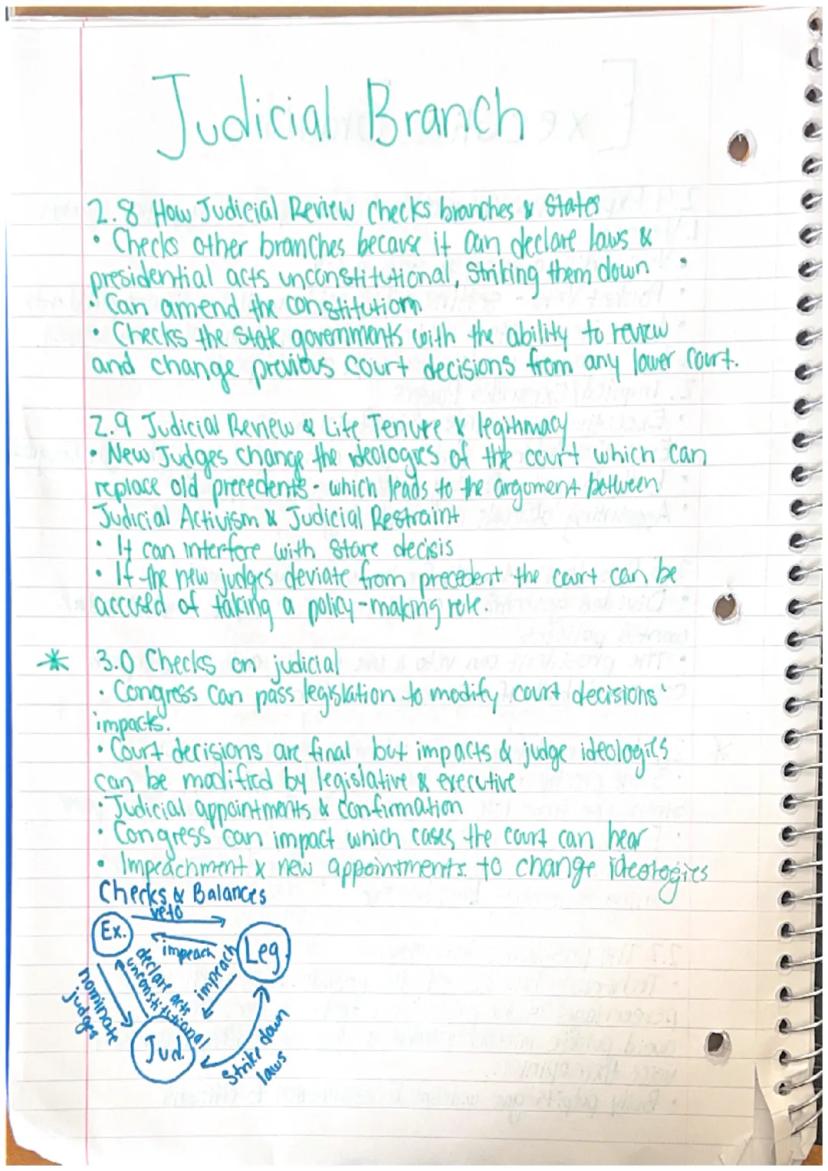 Judicial Branch
2.8 How Judicial Review checks branches & States
• Checks other branches because it can declare laws &
presidential acts unconstitutional, striking them down
• Can amend the constitution
• Checks the state governments with the ability to review
and change previous court decisions from any lower court.
2.9 Judicial Review & Life Tenure & legitimacy
• New Judges change the ideologies of the court which can
replace old precedents - which leads to the argument between
Judicial Activism & Judicial Restraint
• It can interfere with stare decisis
• If the new judges deviate from precedent the court can be
accused of taking a policy-making role.
* 3.0 Checks on judicial
• Congress can pass legislation to modify court decisions'
impacts.
• Court decisions are final but impacts & judge ideologies
can be modified by legislative & executive
• Judicial appointments & confirmation
• Congress can impact which cases the court can hear
• Impeachment & new appointments to change ideologies
Checks & Balances
veto
Ex.
Leg
impeach
impeach
declare acts
unconstitutional
nominate
judges
Jud
Strike down
laws